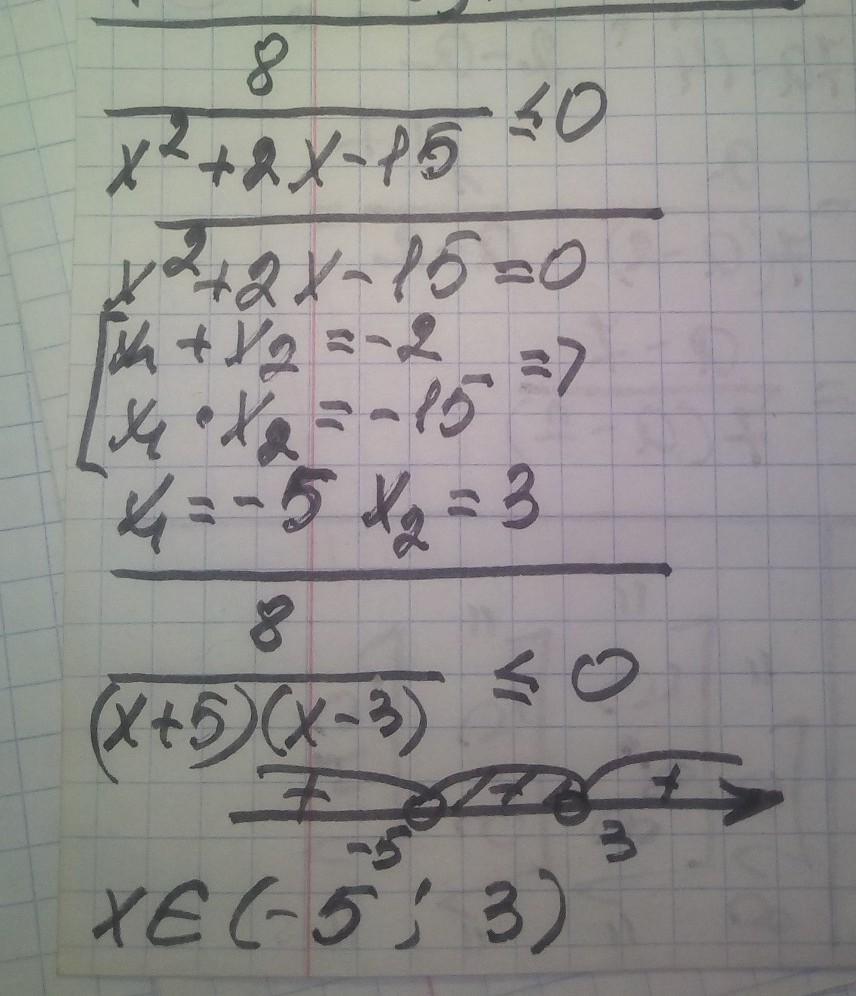 8
x²+2x-15 ≤0
x²+2x-15=0
x₁+x₂=-2
x₁·x₂=-15 =>
x₁=-5 x₂=3
8
(x+5)(x-3) ≤ 0
+ + +
-5 3
x∈(-5; 3)